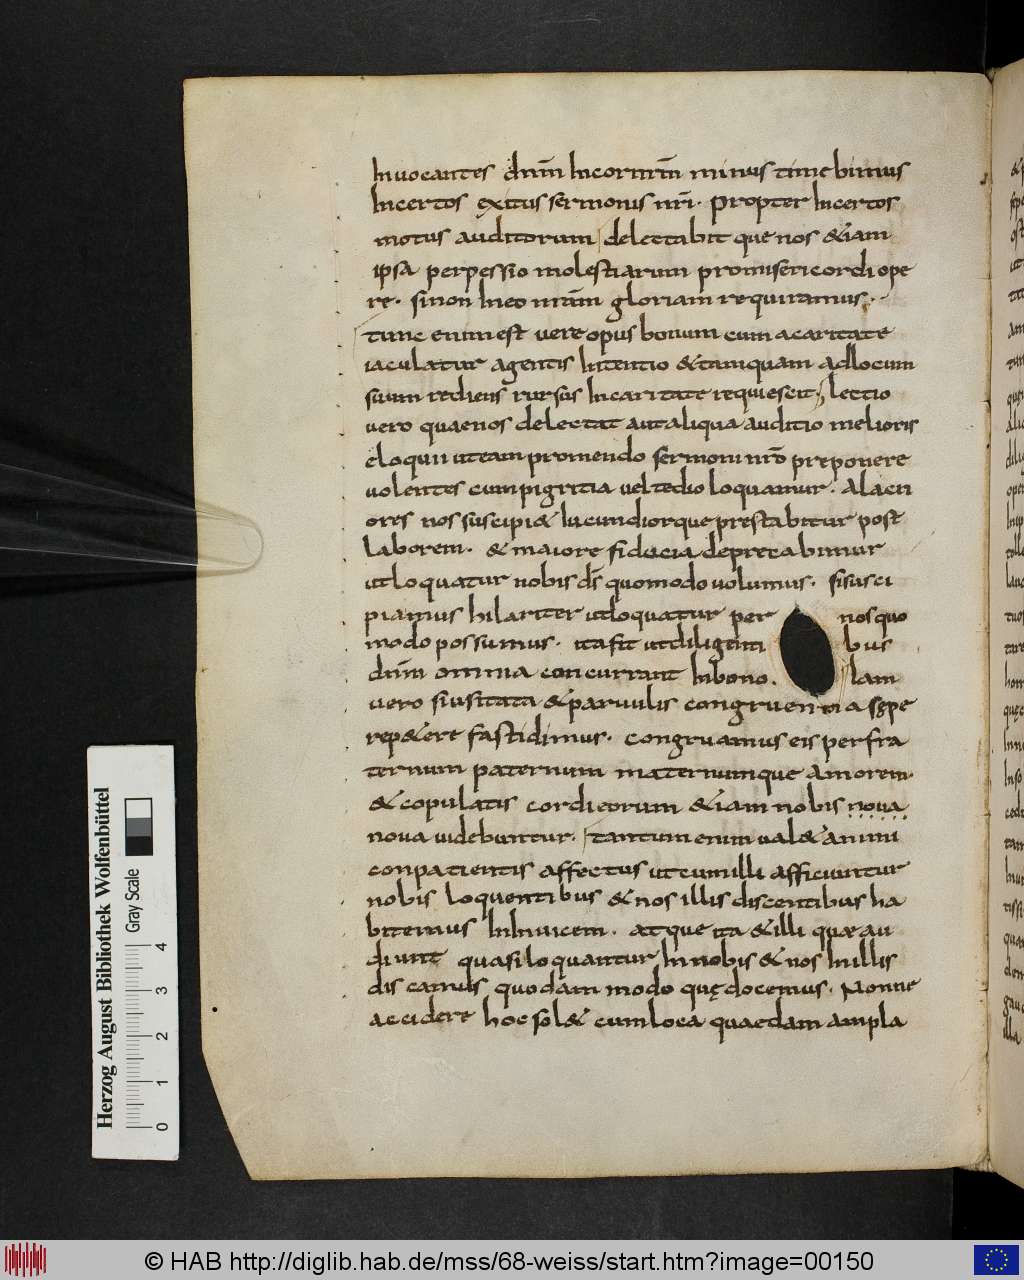 Inuocantes dn̄m Incornr̄m minus timebimus
Incertos exitus sermonis nr̄i. propter Incertos
motus auditorum delectabit que nos &iam
ipsa perpessio molestiarum promisericordi ope
re. sinon Ineo nr̄am gloriam requiramus.
tunc enimest uere opus bonum cum acaritate
iaculatur agentis Intentio &tamquam adlocum
suum rediens rursus Incaritate requiescit; lectio
uero quaenos delectat autaliqua auditio melioris
eloquii uteam promendo sermoni nr̄o preponere
uolentes cumpigritia ueltedio loquamur. Alacri
ores nos suscipi& Iucundiorque prestabitur post
laborem. & maiore fiducia depreca bimur
utloquatur nobis dȳ quomodo uolumus. sisusci
piamus hilariter utloquatur per nosquo
modo possumus. itafit utdiligenti bus
dn̄m omnia concurrant Inbono. Iam
uero siusitata &paruulis congruentia sępe
rep&ere fastidimus. congruamus eis perfra
ternum paternum maternumque Amorem.
& copulatis cordieorum &iam nobis noua
noua uidebuntur. tantum enim ual& animi
conpatientis affectus utcumilli afficiuntur
nobis loquentibus & nos illis discentibus ha
bitemus InInuicem. atque ita &illi quae au
diunt quasiloquantur In nobis & nos Inillis
discamus quodam modo quędocemus. Nonne
accidere hoc sol& cumloca quaedam ampla
Herzog August Bibliothek Wolfenbüttel
Gray Scale
0 1 2 3 4
© HAB http://diglib.hab.de/mss/68-weiss/start.htm?image=00150